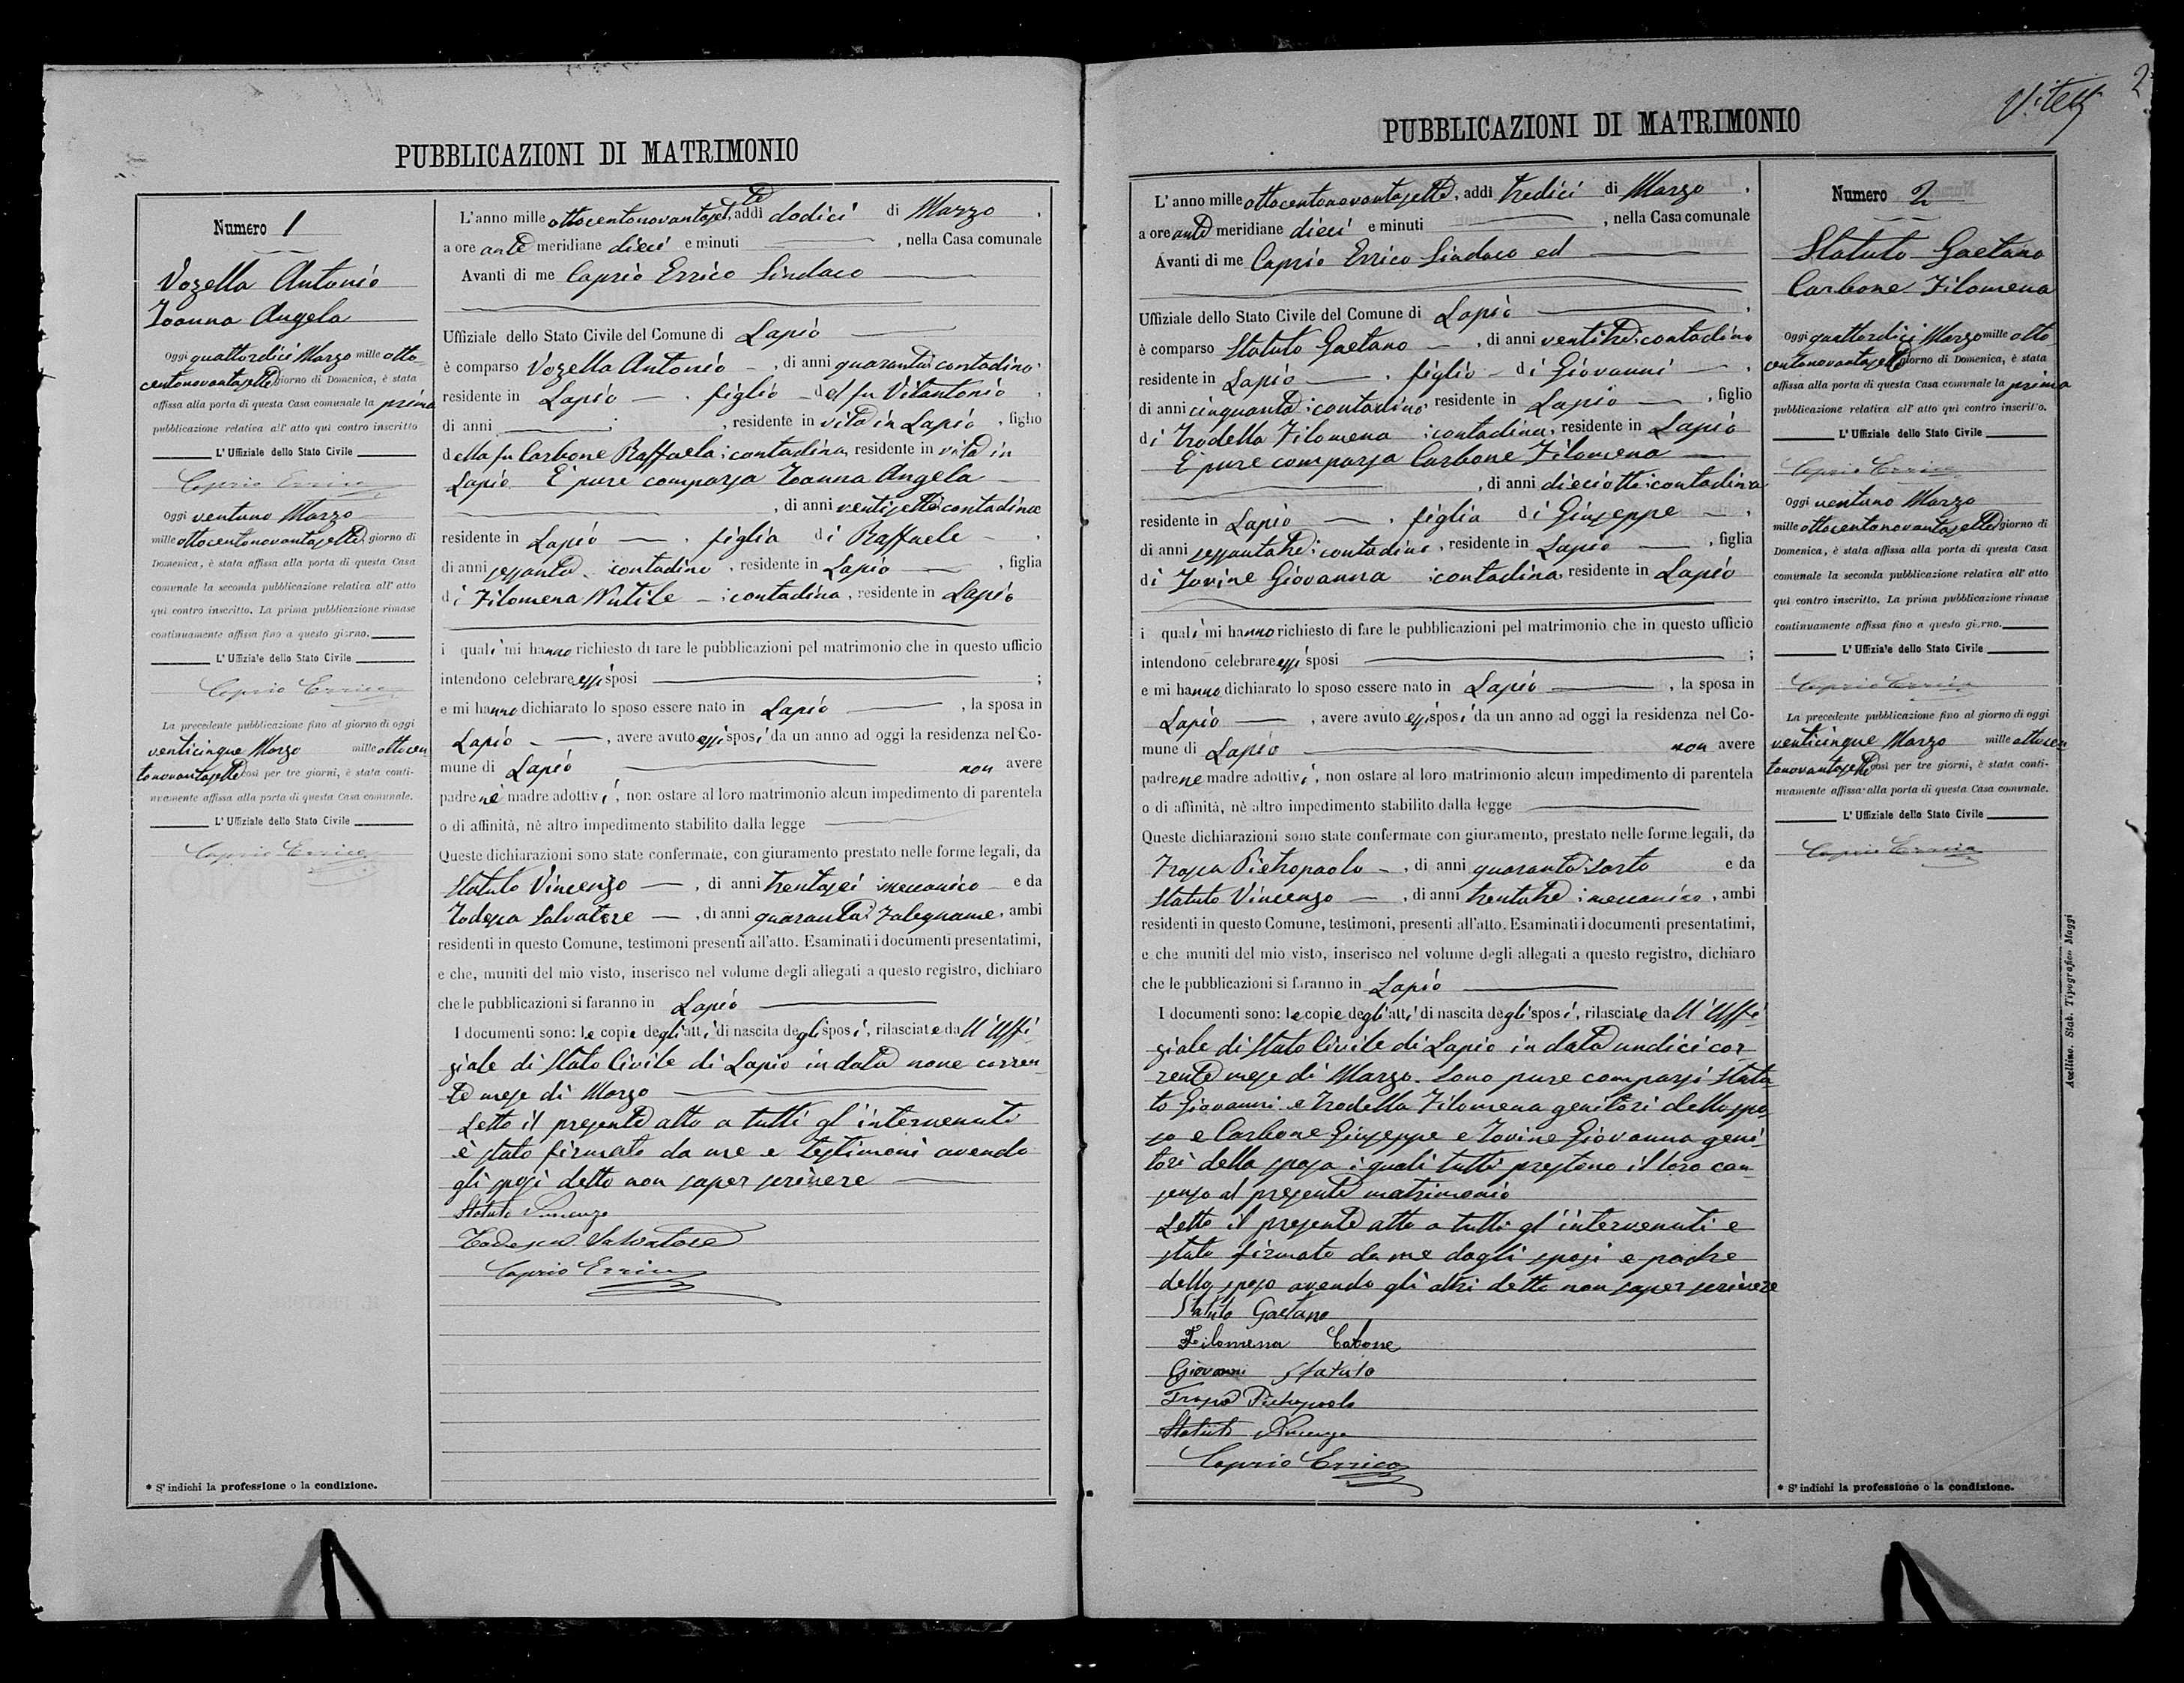 PUBBLICAZIONI DI MATRIMONIO
Numero 1
Vozella Antonio
Zoanna Angela
Oggi quattordici Marzo mille otto
centonovantasette giorno di Domenica, è stata
affissa alla porta di questa Casa comunale la prima
pubblicazione relativa all' atto qui contro inscritto
L' Uffiziale dello Stato Civile
Caprio Errico
Oggi ventuno Marzo
mille ottocentonovantasette giorno di
Domenica, è stata affissa alla porta di questa Casa
comunale la seconda pubblicazione relativa all' atto
qui contro inscritto. La prima pubblicazione rimase
continuamente affissa fino a questo giorno.
L' Uffiziale dello Stato Civile
Caprio Errico
La precedente pubblicazione fino al giorno di oggi
venticinque Marzo mille ottocen
tonovantasette così per tre giorni, è stata conti-
nuamente affissa alla porta di questa Casa comunale.
L' Uffiziale dello Stato Civile
Caprio Errico
* S' indichi la professione o la condizione.
L'anno mille ottocentonovantasette, addì dodici di Marzo,
a ore ante meridiane dieci e minuti , nella Casa comunale
Avanti di me Caprio Errico Sindaco
Uffiziale dello Stato Civile del Comune di Lapio
è comparso Vozella Antonio, di anni quaranta contadino,
residente in Lapio, figlio del fu Vitantonio,
di anni , residente in vita in Lapio, figlio
della fu Carbone Raffaela contadina, residente in vita in
Lapio È pure comparsa Zoanna Angela
, di anni ventisette contadina
residente in Lapio, figlia di Raffaele,
di anni sessanta contadino, residente in Lapio, figlia
di Filomena Nutile contadina, residente in Lapio
i quali mi hanno richiesto di fare le pubblicazioni pel matrimonio che in questo ufficio
intendono celebrare essi sposi ;
e mi hanno dichiarato lo sposo essere nato in Lapio, la sposa in
Lapio, avere avuto essi sposi da un anno ad oggi la residenza nel Co-
mune di Lapio non avere
padre nè madre adottivi, non ostare al loro matrimonio alcun impedimento di parentela
o di affinità, nè altro impedimento stabilito dalla legge
Queste dichiarazioni sono state confermate, con giuramento prestato nelle forme legali, da
Statuto Vincenzo, di anni trentasei meccanico e da
Todesca Salvatore, di anni quaranta Falegname, ambi
residenti in questo Comune, testimoni presenti all'atto. Esaminati i documenti presentatimi,
e che, muniti del mio visto, inserisco nel volume degli allegati a questo registro, dichiaro
che le pubblicazioni si faranno in Lapio
I documenti sono: le copie degli atti di nascita degli sposi, rilasciate dall' Uffi
ziale di Stato Civile di Lapio in data nove corren
te mese di Marzo
Letto il presente atto a tutti gl'intervenuti
è stato firmato da me e testimoni avendo
gli sposi detto non saper scrivere
Statuto Vincenzo
Todesca Salvatore
Caprio Errico
2
PUBBLICAZIONI DI MATRIMONIO
L'anno mille ottocentonovantasette, addì tredici di Marzo,
a ore ante meridiane dieci e minuti , nella Casa comunale
Avanti di me Caprio Errico Sindaco ed
Uffiziale dello Stato Civile del Comune di Lapio
è comparso Statuto Gaetano, di anni ventitre contadino
residente in Lapio, figlio di Giovanni,
di anni cinquanta contadino, residente in Lapio, figlio
di Trodella Filomena contadina, residente in Lapio
È pure comparsa Carbone Filomena
, di anni dieciotto contadina
residente in Lapio, figlia di Giuseppe,
di anni sessantatre contadino, residente in Lapio, figlia
di Iovine Giovanna contadina, residente in Lapio
i quali mi hanno richiesto di fare le pubblicazioni pel matrimonio che in questo ufficio
intendono celebrare essi sposi ;
e mi hanno dichiarato lo sposo essere nato in Lapio, la sposa in
Lapio, avere avuto essi sposi da un anno ad oggi la residenza nel Co-
mune di Lapio non avere
padre ne madre adottivi, non ostare al loro matrimonio alcun impedimento di parentela
o di affinità, nè altro impedimento stabilito dalla legge
Queste dichiarazioni sono state confermate con giuramento, prestato nelle forme legali, da
Pietropaolo, di anni quaranta Sarto e da
Statuto Vincenzo, di anni trentatre meccanico, ambi
residenti in questo Comune, testimoni, presenti all'atto. Esaminati i documenti presentatimi,
e che muniti del mio visto, inserisco nel volume degli allegati a questo registro, dichiaro
che le pubblicazioni si faranno in Lapio
I documenti sono: le copie degli atti di nascita degli sposi, rilasciate dall' Uffi
ziale di Stato Civile di Lapio in data undici cor
rente mese di Marzo. Sono pure comparsi Statu
to Giovanni e Trodella Filomena genitori dello spo
so e Carbone Giuseppe e Iovine Giovanna geni
tori della sposa i quali tutti prestano il loro con
senso al presente matrimonio
Letto il presente atto a tutti gl'intervenuti e
stato firmato da me dagli sposi e padre
dello sposo avendo gli altri detto non saper scrivere
Statuto Gaetano
Filomena Carbone
Giovanni Statuto
Pietropaolo
Statuto Vincenzo
Caprio Errico
Numero 2
Statuto Gaetano
Carbone Filomena
Oggi quattordici Marzo mille otto
centonovantasette giorno di Domenica, è stata
affissa alla porta di questa Casa comunale la prima
pubblicazione relativa all' atto qui contro inscritto.
L' Uffiziale dello Stato Civile
Caprio Errico
Oggi ventuno Marzo
mille ottocentonovantasette giorno di
Domenica, è stata affissa alla porta di questa Casa
comunale la seconda pubblicazione relativa all' atto
qui contro inscritto. La prima pubblicazione rimase
continuamente affissa fino a questo giorno.
L' Uffiziale dello Stato Civile
Caprio Errico
La precedente pubblicazione fino al giorno di oggi
venticinque Marzo mille ottocen
tonovantasette così per tre giorni, è stata conti-
nuamente affissa alla porta di questa Casa comunale.
L' Uffiziale dello Stato Civile
Caprio Errico
* S' indichi la professione o la condizione.
Avellino. Stab. Tipografico Maggi